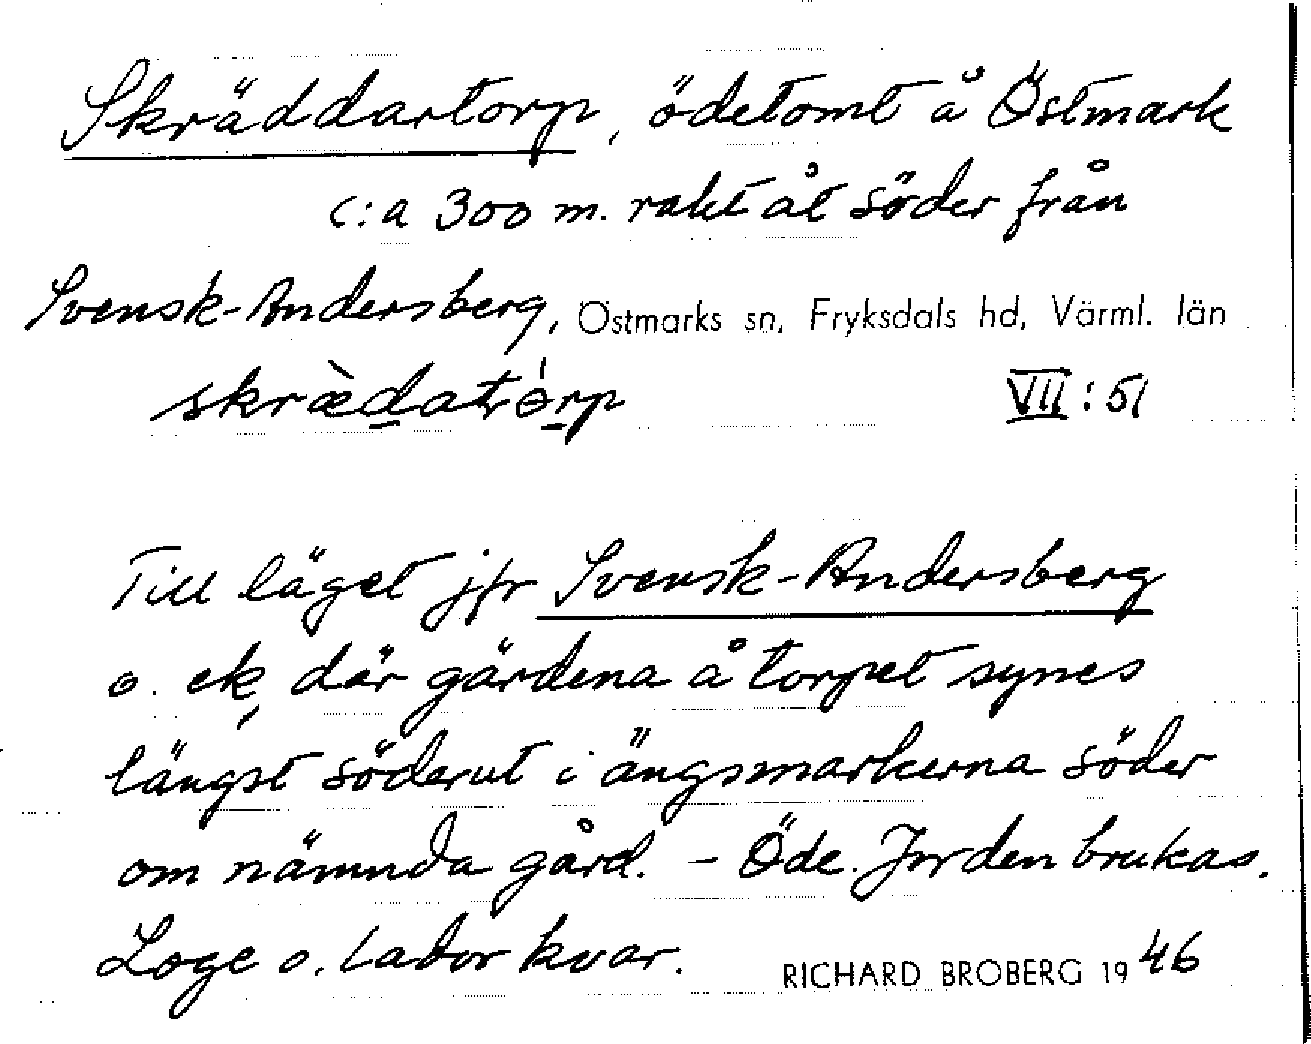 Skräddartorp, ödetomt å Östmark
c:a 300 m. rakt åt söder från
Svensk-Andersberg, Östmarks sn, Fryksdals hd, Värml. län
skræ̀datórp VII:51
Till läget jfr Svensk-Andersberg
o. ek, där gärdena å torpet synes
längst söderut i ängsmarkerna söder
om nämnda gård. – Öde. Jorden brukas.
Loge o. lador kvar. RICHARD BROBERG 1946